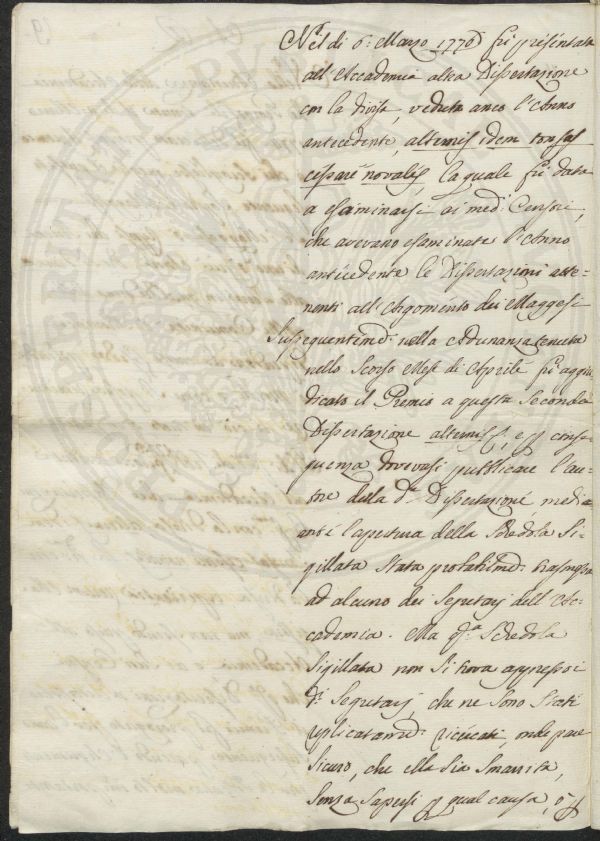 Nel di 6: Marzo 1770 fù presentata
all'Accademia altra Dissertazione
con la divisa, veduta anco l'Anno
antecedente, alternis idem tonsas
cessare novalis, la quale fù data
a esaminarsi ai med: Censori,
che avevano esaminate l'Anno
antecedente le Dissertazioni atte-
nenti all'Argomento dei Maggesi
Susseguentemd: nella Adunanza tenuta
nello Scorso Mese di Aprile fù aggiu
dicato il Premio a questa Seconda
Dissertazione alternis &, e p conse
guenza dovevasi pubblicare l'au-
tore della d: Dissertazione, medi
ante l'apertura della Schedola Si-
gillata Stata probabilmd: trasmessa
ad alcuno dei Segretarj dell'Ac-
cademia. Ma q:ta Schedola
Sigillata non si trova appresso i
d:i Segretarj che ne Sono Stati
replicatamd: ricercati, onde pare
Sicuro, che ella Sia Smarrita,
Senza Sapersi p qual causa, ò p